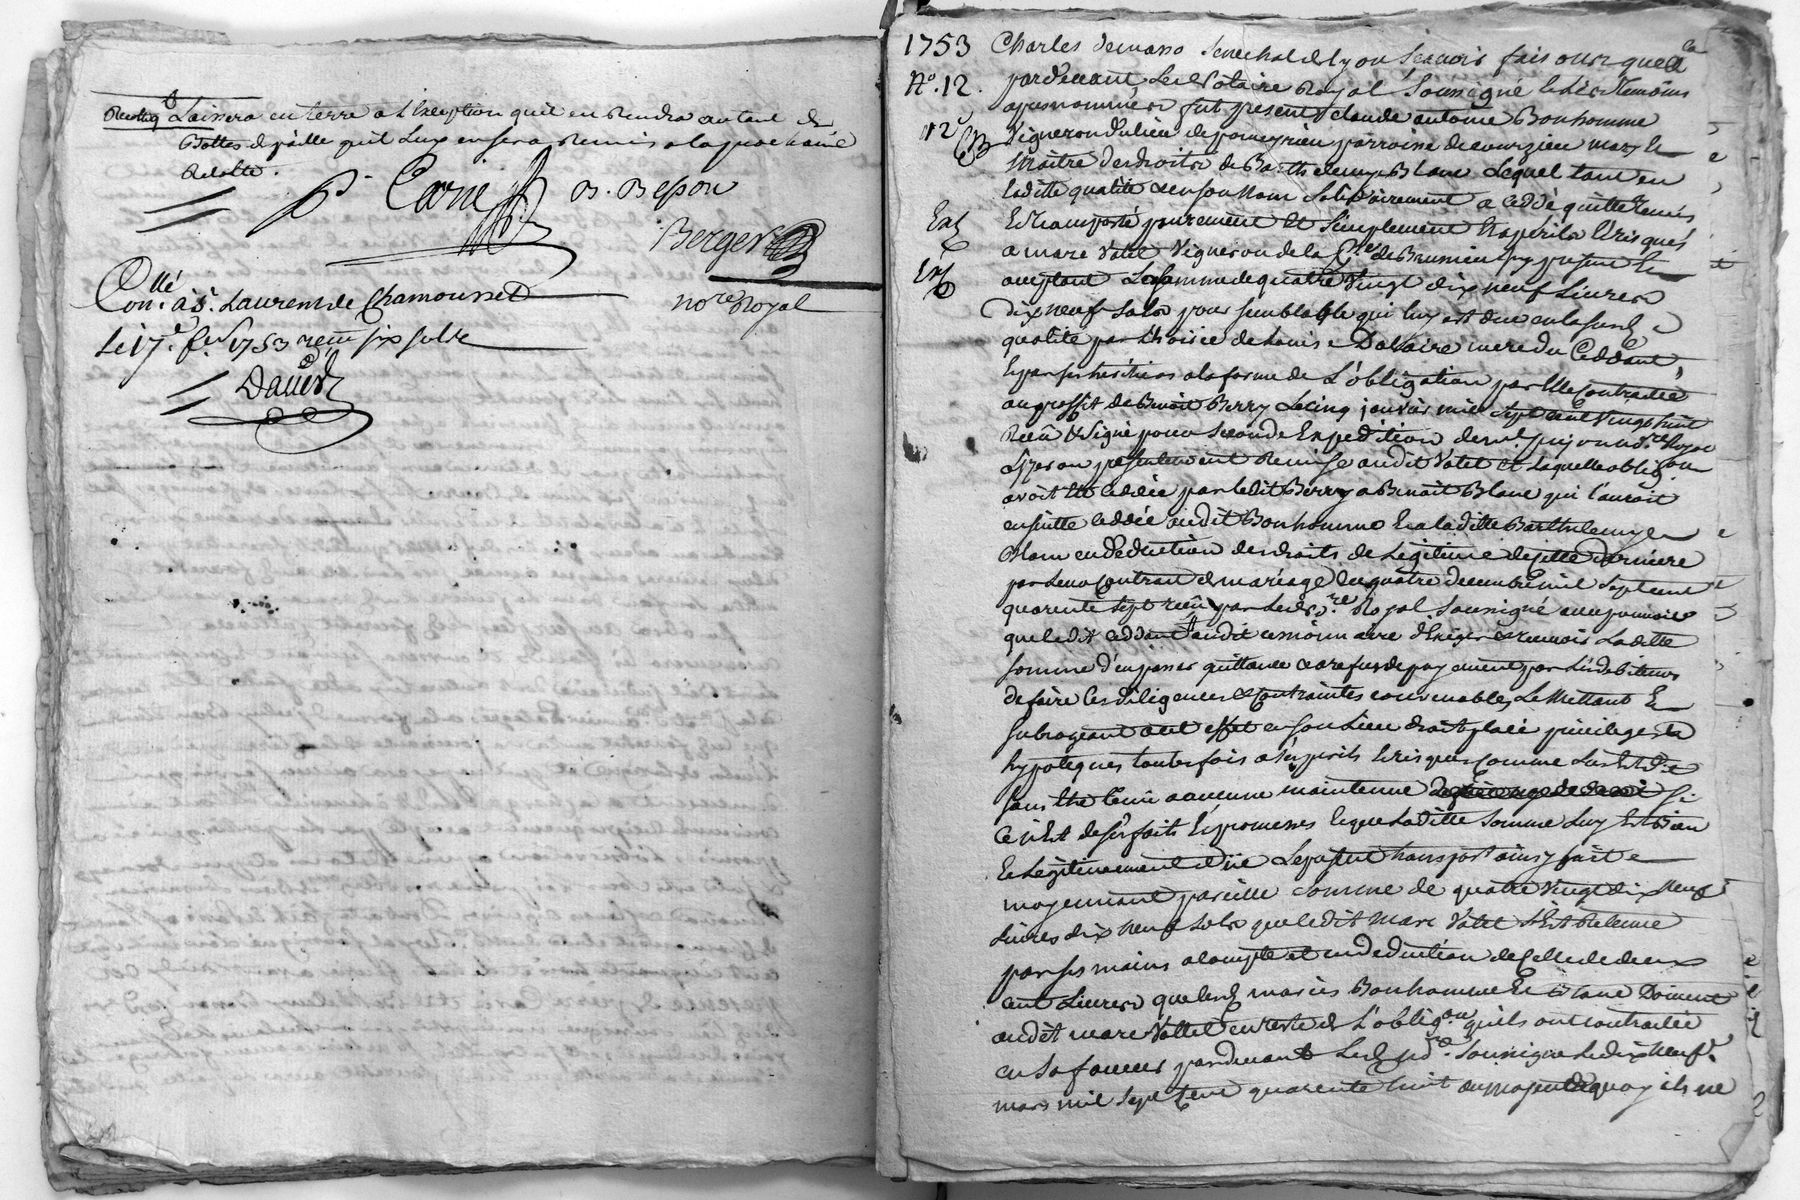 Laissera en terre a l'Exeption quil en Rendra autant de
Bottes de paille quil Luy en sera Remis a la prochaine
Recolte.
Carrie B. Besson
Berger
no.re Royal
Con.llé à S.t Laurent de Chamousset
Le 17.e fer 1753 reçu six sols
Daved
1753
N.o 12.
112
Ex
Ex
Charles demasso Senechal de Lyon Scavoir fais ons que
pardevant Le Notaire Royal Soussigné & les Temoins
apres nommés fut present Claude antoine Bonhomme
Vigneron du lieu de pomeyrieu parroisse de courzieu mary &
Maitre des droits de Barthelemye Blanc Lequel tant en
laditte qualité qu'en son Nom Solidairement a ceddé quitté Remis
Et Transporté purement Et Simplement a ses perils & risques
a marc Votet Vigneron de la P.sse de Brussieu icy present &
aceptant La Somme de quatre Vingt dix neuf Livres
Dix neuf Sols pour semblable qui luy est due en la susd.
qualité par L'hoirie de Louise Dalaire mere du Ceddant
& par ses heritiers a la forme de L'obligation par Elle Contractée
au proffit de Benoit Berry Le cinq janvier mil Sept Cent Vingt huit
Reçu & Signé pour Seconde Expedition de m.e no.re Royal
presentement Remise audit Votet Et Laquelle oblig.on
avoit Eté ceddée par ledit Berry a Benoit Blanc qui l'auroit
ensuitte ceddée audit Bonhomme & a laditte Barthelemye
Blanc en Deduction des droits de Legitime de cette Derniere
par Leur Contrat de mariage du quatre decembre mil Sept cent
quarente Sept reçu par Led. no.re Royal Soussigné avec pouvoir
que ledit ceddant audit cessionnaire d'Exiger & recevoir Laditte
Somme d'en passer quittance & a refus de payement par Les debiteurs
de faire Les diligences & Contraintes convenables, Le Mettant &
Subrogeant a cet effet en son Lieu droit place privilege &
hypoteques toutesfois a ses perils & risques Comme dit Est
sans Etre tenu a aucune maintenue Si
Ce n'est de ses faits & promesses & que Laditte Somme Luy Est Bien
& Legitimement düe Le present transport ainsy fait
moyennant pareille Somme de quatre Vingt dix Neuf
Livres dix Neuf Sols que ledit Marc Votet s'Est Retenue
par ses mains a compte et en deduction de Celle de deux
cent Livres que lesd. mariés Bonhomme & Blanc Doivent
audit marc Vottet en reste de L'oblig.on quils ont contractée
en Sa faveur pardevant Led. no.re Soussigné Le dix Neuf
mars mil Sept Cent quarente huit au moyen dequoy ils ne